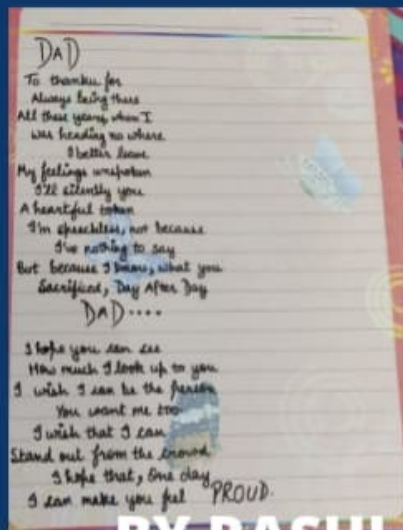 DAD
To thanku for
Always being there
All these years, when I
was heading no where
I better leave
My feelings unspoken
I'll silently you
A heartful token
I'm speechless, not because
I've nothing to say
But because I know, what you
Sacrificed, Day After Day
DAD....
I hope you can see
How much I look up to you
I wish I can be the person
You want me too
I wish that I can
Stand out from the crowd
I hope that, One day
I can make you feel PROUD.
BY RASHI